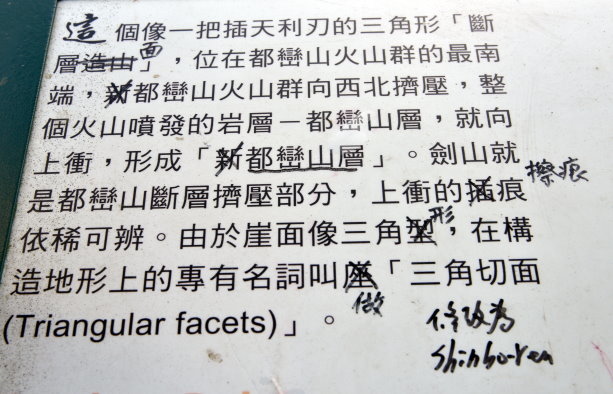 這個像一把插天利刃的三角形「斷
層造山面」，位在都巒山火山群的最南
端，新都巒山火山群向西北擠壓，整
個火山噴發的岩層－都巒山層，就向
上衝，形成「新都巒山層」。劍山就
是都巒山斷層擠壓部分，上衝的痕擦痕
依稀可辨。由於崖面像三角型形，在構
造地形上的專有名詞叫座「三角切面
(Triangular facets)」。
做
修改為